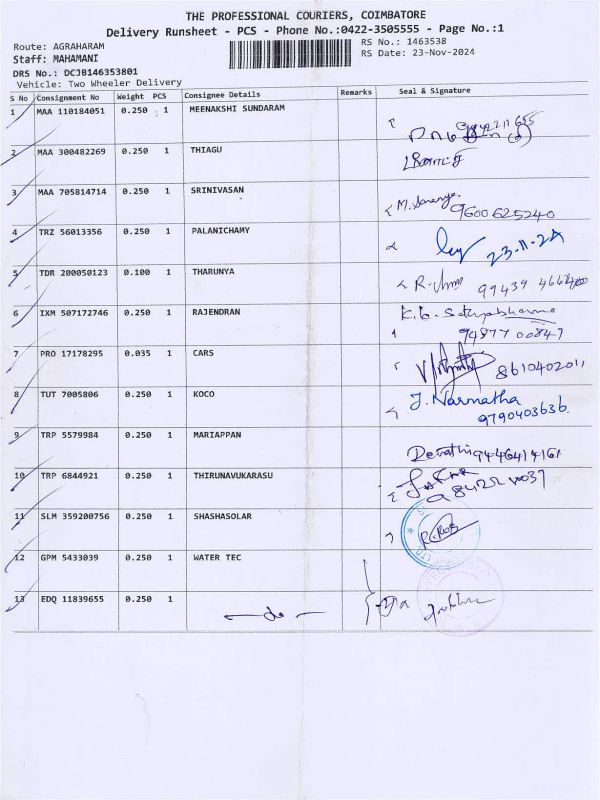 THE PROFESSIONAL COURIERS, COIMBATORE
Delivery Runsheet - PCS - Phone No.:0422-3505555 - Page No.:1
Route: AGRAHARAM
RS No.: 1463538
Staff: MAHAMANI
RS Date: 23-Nov-2024
DRS No.: DCJB146353801
Vehicle: Two Wheeler Delivery
S No Consignment No Weight PCS Consignee Details Remarks Seal & Signature
1 MAA 110184051 0.250 1 MEENAKSHI SUNDARAM
2 MAA 300482269 0.250 1 THIAGU
3 MAA 705814714 0.250 1 SRINIVASAN
9600625240
4 TRZ 56013356 0.250 1 PALANICHAMY
23-11-24
5 TDR 200050123 0.100 1 THARUNYA
6 IXM 507172746 0.250 1 RAJENDRAN
94877 00847
7 PRO 17178295 0.035 1 CARS
8610402011
8 TUT 7005806 0.250 1 KOCO
9790403636
9 TRP 5579984 0.250 1 MARIAPPAN
10 TRP 6844921 0.250 1 THIRUNAVUKARASU
11 SLM 359200756 0.250 1 SHASHASOLAR
12 GPM 5433039 0.250 1 WATER TEC
13 EDQ 11839655 0.250 1 —do—